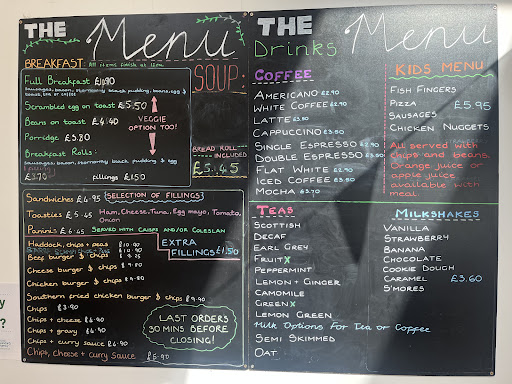 THE Menu
BREAKFAST: All items finish at 12pm
Full Breakfast £11.90
Sausages, bacon, stornoway black pudding, beans, egg &
toast, tea or coffee
Scrambled egg on toast £5.50
Beans on toast £4.40
Porridge £3.80
VEGGIE
OPTION TOO!
Breakfast Rolls:
Sausages, bacon, stornoway black pudding & egg
£3.70 fillings £1.50
SOUP:
BREAD ROLL
INCLUDED
£5.45
Sandwiches £4.95 {SELECTION OF FILLINGS}
Toasties £5.45 Ham, Cheese, Tuna, Egg mayo, Tomato,
Onion
Paninis £6.45 SERVED WITH CRISPS AND/OR COLESLAW
Haddock, chips + peas £10.90
Beef burger & chips
Cheese burger & chips £9.80
Chicken burger & chips £9.80
Southern fried chicken burger & chips £9.90
EXTRA
FILLINGS £1.50
Chips £3.90
Chips + cheese £4.90
Chips + gravy £4.90
Chips + curry sauce £4.90
Chips, Cheese + curry sauce £5.90
LAST ORDERS
30 MINS BEFORE
CLOSING!
THE Menu
Drinks
COFFEE
AMERICANO £2.90
WHITE COFFEE £2.90
LATTE £3.50
CAPPUCCINO £3.50
SINGLE ESPRESSO £2.90
DOUBLE ESPRESSO £3.50
FLAT WHITE £2.90
ICED COFFEE £3.50
MOCHA £3.70
KIDS MENU
FISH FINGERS
PIZZA £5.95
SAUSAGES
CHICKEN NUGGETS
All served with
chips and beans.
Orange juice or
apple juice
available with
meal
TEAS
SCOTTISH
DECAF
EARL GREY
FRUIT X
PEPPERMINT
LEMON + GINGER
CAMOMILE
GREEN X
LEMON GREEN
Milk Options For Tea or Coffee
SEMI SKIMMED
OAT
MILKSHAKES
VANILLA
STRAWBERRY
BANANA
CHOCOLATE
COOKIE DOUGH
CARAMEL £3.60
S'MORES
y
?